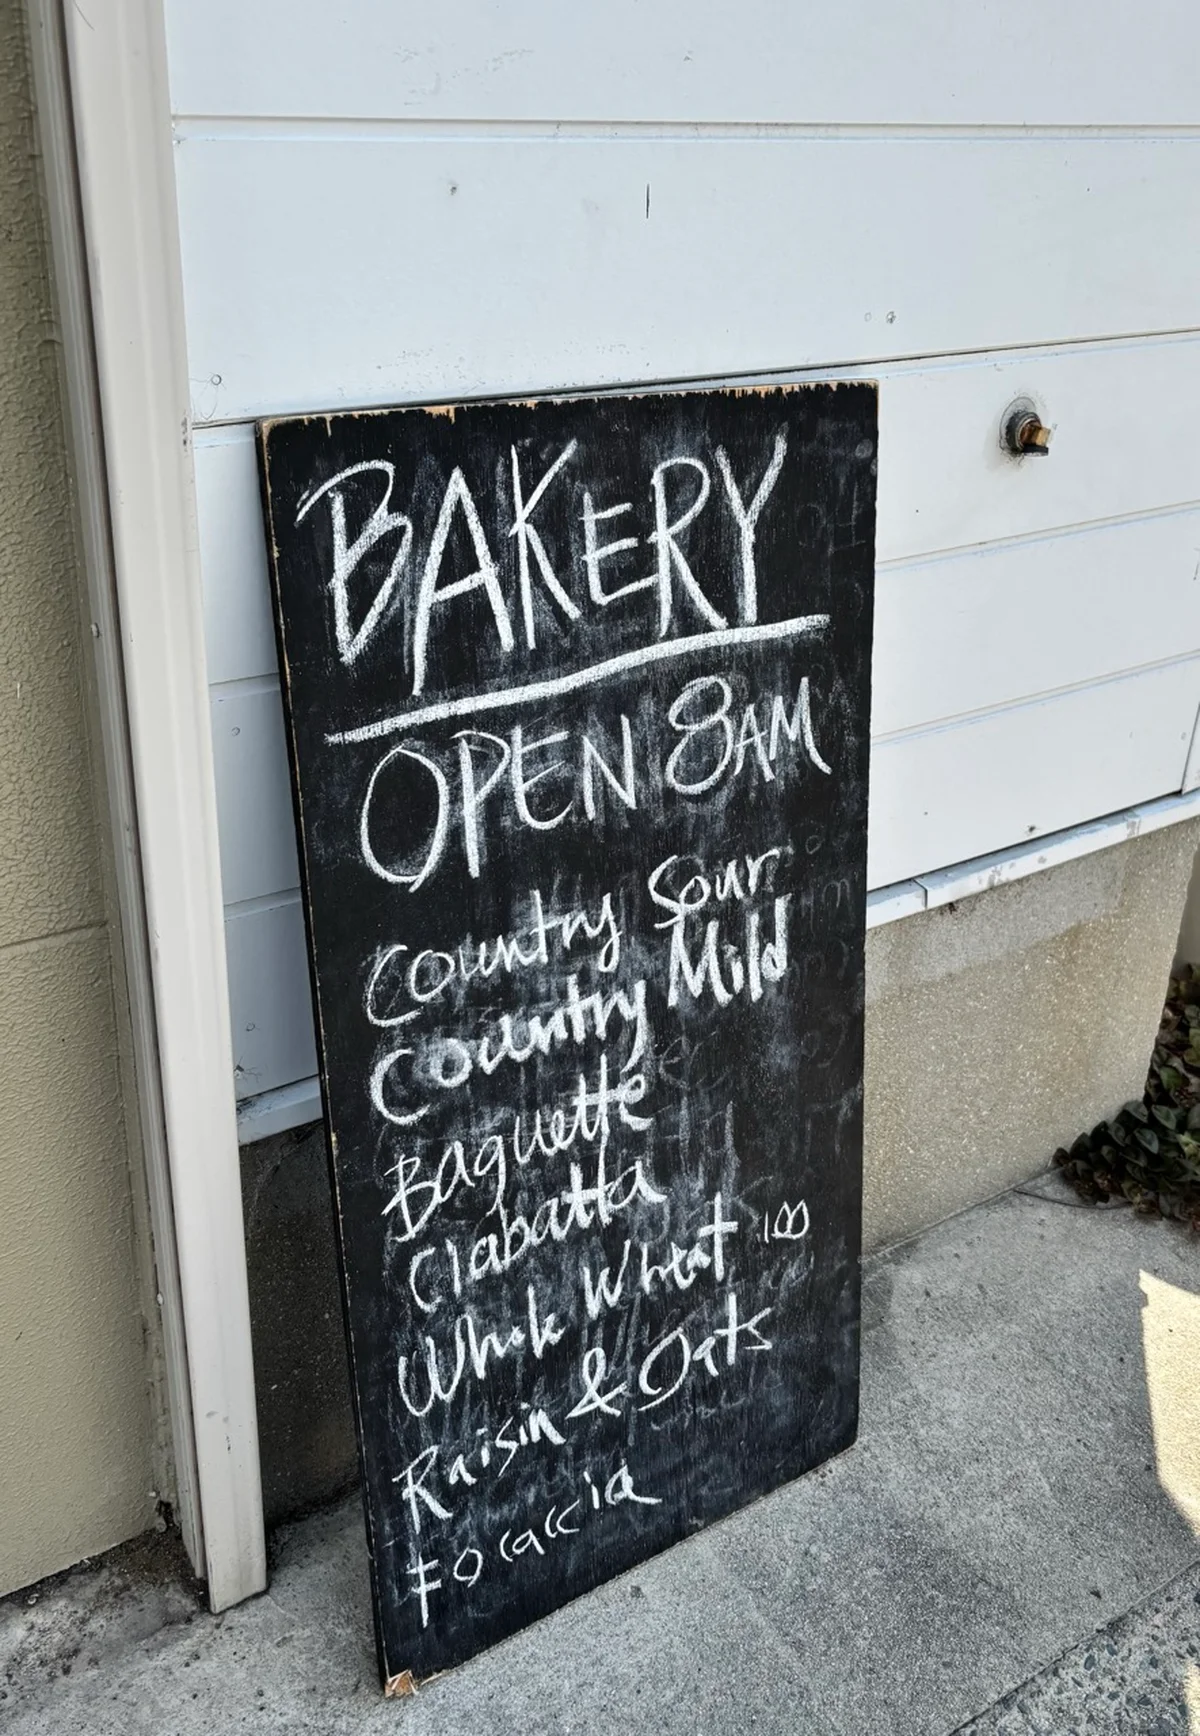 BAKERY
OPEN 8AM
Country Sour
Country Mild
Baguette
Ciabatta
Whole Wheat 100
Raisin & Oats
Focaccia